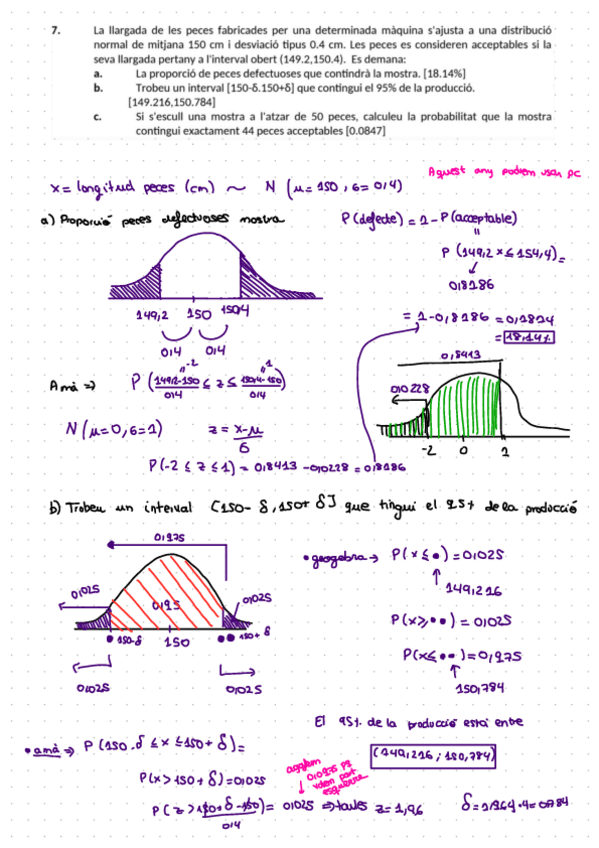 7. La llargada de les peces fabricades per una determinada màquina s'ajusta a una distribució
normal de mitjana 150 cm i desviació tipus 0.4 cm. Les peces es consideren acceptables si la
seva llargada pertany a l'interval obert (149.2,150.4). Es demana:
a. La proporció de peces defectuoses que contindrà la mostra. [18.14%]
b. Trobeu un interval [150-δ.150+δ] que contingui el 95% de la producció.
[149.216,150.784]
c. Si s'escull una mostra a l'atzar de 50 peces, calculeu la probabilitat que la mostra
contingui exactament 44 peces acceptables [0.0847]
Aquest any podrem usar pc
x = longitud peces (cm) ~ N (μ = 150, σ = 0,4)
a) Proporció peces defectuoses mostra
P(defecte) = 1 - P(acceptable)
"
P (149,2 x ≤ 154,4) =
0,8186
149,2 150 150,4
0,4 0,4
= 1 - 0,8186 = 0,1814
= 18,14%
0,8413
" -2 " 1
A mà => P (149,2-150/0,4 ≤ z ≤ 150,4-150/0,4)
0,0228
-2 0 1
N (μ=0, σ=1) z = x-μ/σ
P(-2 ≤ z ≤ 1) = 0,8413 - 0,0228 = 0,8186
b) Trobeu un interval [150-δ, 150+δ] que tingui el 95% de la producció
0,975
0,025
0,95
0,025
150-δ 150 150+δ
0,025 0,025
• geogebra → P(x ≤ •) = 0,025
149,216
P(x ≥ ••) = 0,025
P(x ≤ ••) = 0,975
150,784
El 95% de la producció està entre
(149,216 ; 150,784)
• a mà => P (150-δ ≤ x ≤ 150+δ) =
P(x > 150+δ) = 0,025
agafem
0,0975 pq
volem part
esquerra
P(z > 150+δ-150/0,4) = 0,025 => taules z = 1,96 δ = 1,96·0,4 = 0,784